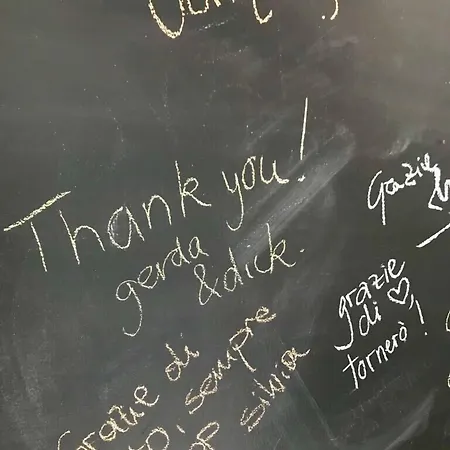 Thank you!
gerda
& dick.
Grazie
grazie
di ♡!
tornerò!
Grazie di
sempre
Silvia